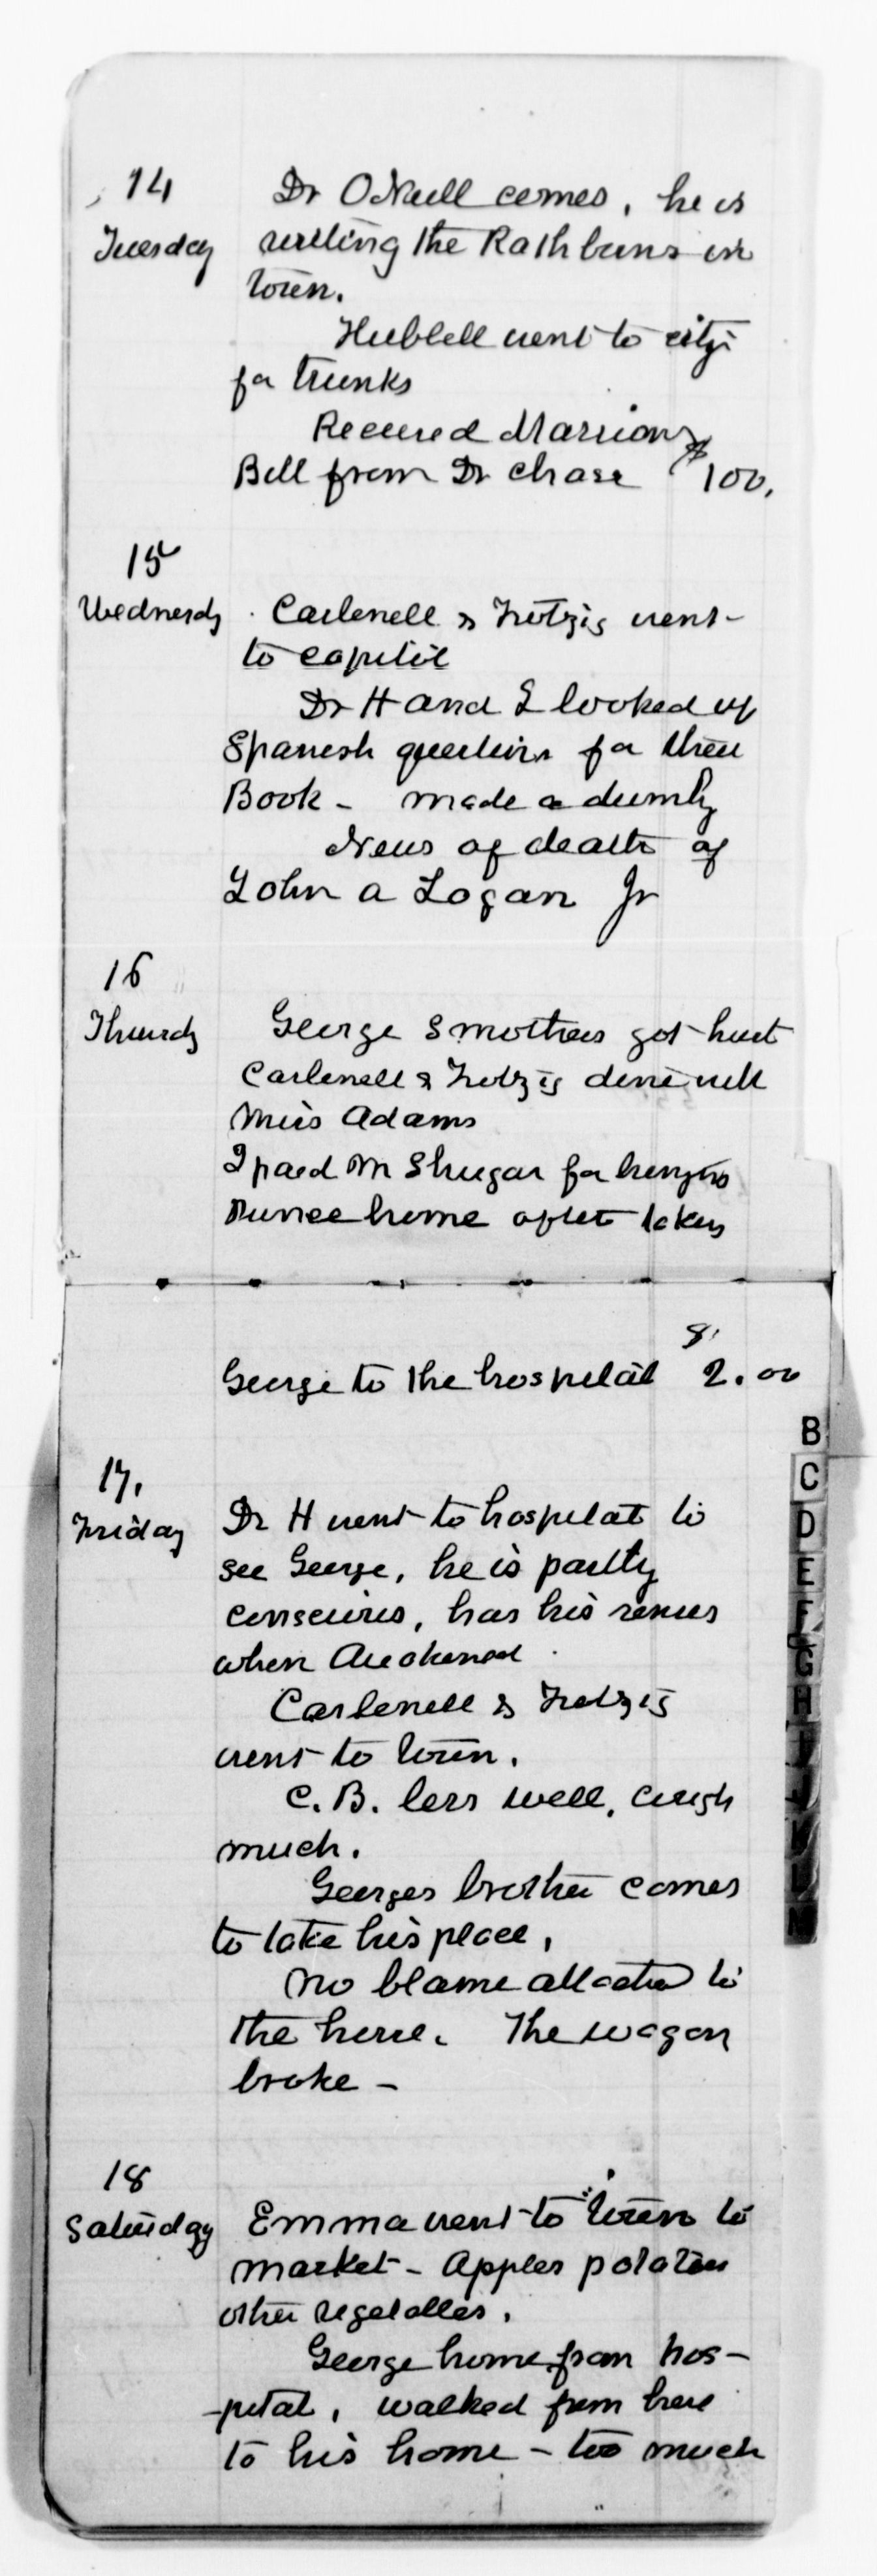 14
Tuesday
Dr ONeill comes, he is
visiting the Rathbuns in
town.
Hubbell went to city
for trunks
Received Marrions
Bill from Dr Chase $100.
15
Wednesdy
Carlenell & Fretzis went
to capitol
Dr H and I looked up
Spanish questions for their
Book - made a dumby
News of death of
John A Logan Jr
16
Thursdy
George Smothers got hurt
Carlenell & Fretzis dine with
Miss Adams
I paid Mr Shugar for bringing
home after taking
George to the hospital $2.00
17.
Friday
Dr H went to hospital to
see George, he is partly
conscious, has his senses
when Awakened.
Carlenell & Fretzis
went to town.
C. B. less well, cough
much.
Georges brother comes
to take his place,
No blame attached to
the horse. The wagon
broke -
18
Saturday
Emma went to town to
market - Apples potatoes
other vegetables.
George home from hos-
-pital, walked from here
to his home - too much
B
C
D
E
F
G
H
I
J
K
L
M